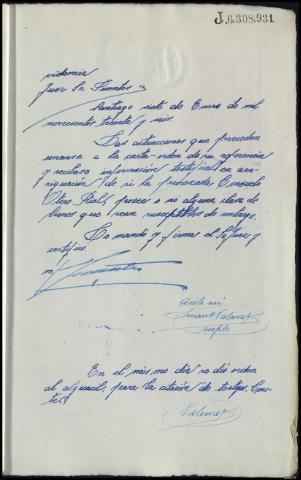 J.6.308.931
videncia
Juez Sr. Fuentes
Santiago siete de Enero de mil
novecientos treinta y seis.
Las actuaciones que preceden
unanse a la carta-orden de su referencia
y recibase informacion testifical en ave-
riguación de si la procesada Consuelo
Otero Rial, posee o no alguna clase de
bienes que sean susceptibles de embargo.
Lo mandó y firma el Sr Juez y
certifico.
ante mi
En el mismo dia se dió orden
al alguacil, para la citación de testigos. Cons-
te.